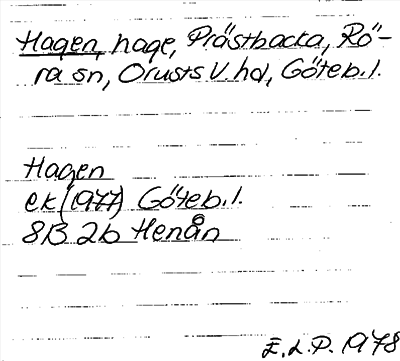 Hagen, hage, Prästbacka, Rö-
ra sn, Orusts V. hd, Göteb. l.
Hagen
ek (1977) Göteb. l.
8B 2b Henån
E. L. P. 1978